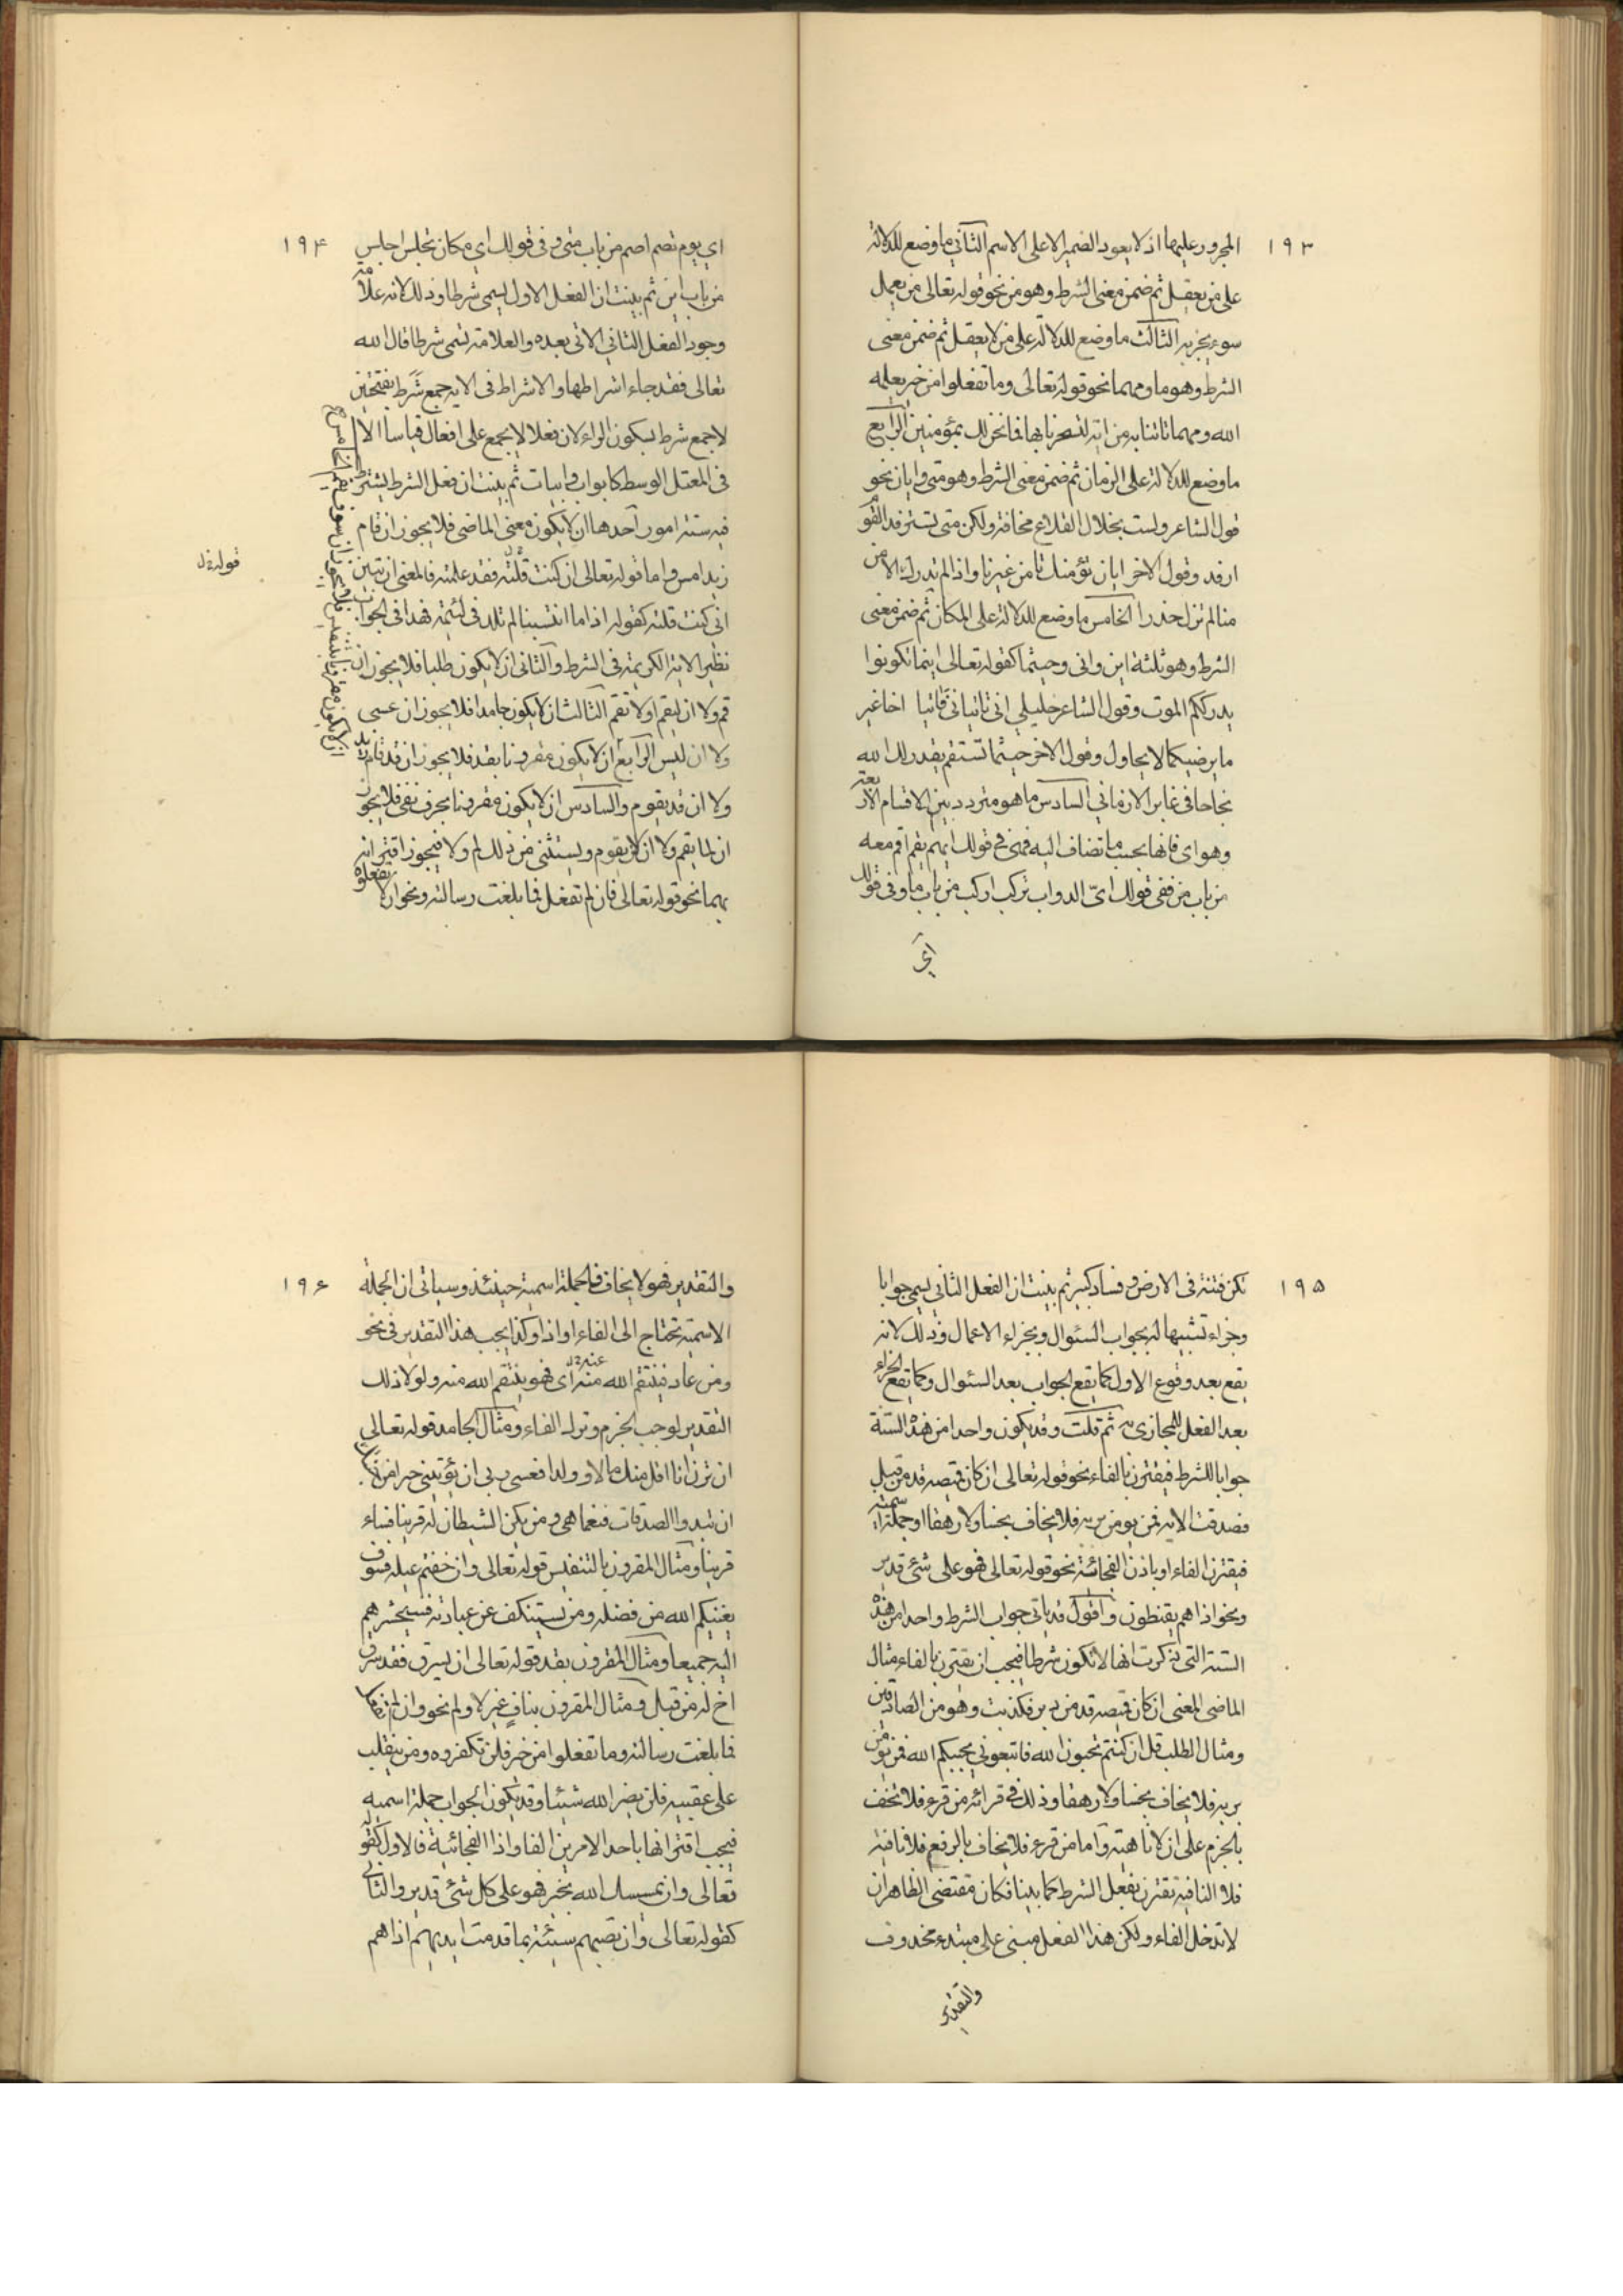 ١٩٣
المجرور عليها اذ لا يعود الضمير الا على الاسم الثاني ما وضع للدلالة
على من يعقل ثم ضمن معنى الشرط وهو من نحو قوله تعالى من يعمل
سوء يجز به الثالث ما وضع للدلالة على من لا يعقل ثم ضمن معنى
الشرط وهو ما ومهما نحو قوله تعالى وما تفعلوا من خير يعلمه
الله ومهما تاتنا به من اية لتسحرنا بها فما نحن لك بمؤمنين الرابع
ما وضع للدلالة على الزمان ثم ضمن معنى الشرط وهو متى وايان نحو
قول الشاعر ولست بحلال القلاع مخافة ولكن متى تسترفد القوم
ارفد وقول الاخر ايان نؤمنك تامن غيرنا واذا لم تدرك الامن
منا لم تزل حذرا الخامس ما وضع للدلالة على المكان ثم ضمن معنى
الشرط وهو ثلثة اين وانى وحيثما كقوله تعالى اينما تكونوا
يدرككم الموت وقول الشاعر خليلي انى تاتياني فاتيا اخا غير
ما يرضيكما لا يحاول وقول الاخر حيثما تستقم يقدر لك الله
نجاحا في غابر الازماني السادس ما هو متردد بين الاقسام الاربعة
وهو اى فانها بحسب ما تضاف اليه فهى في قولك ايهم يقم اقم معه
من باب من ففى قولك اىّ الدواب تركب اركب من باب ما وفى قولك
اي
١٩٤
اي يوم تصم اصم من باب متى وفى قولك اي مكان تجلس اجلس
من باب اين ثم بينت ان الفعل الاول ليسمى شرطا وذلك لانه علامة
وجود الفعل الثاني الاتى بعده والعلامة تسمى شرطا قال الله
تعالى فقد جاء اشراطها والاشراط فى الاية جمع شَرَط بفتحتين
لا جمع شرط بسكون الراء لان فعلا لا يجمع على افعال قياسا الا
فى المعتل الوسط كابواب وابيات ثم بينت ان فعل الشرط يشترط
فيه ستة امور احدها ان لا يكون معنى الماضى فلا يجوز ان قام
زيد امس واما قوله تعالى ان كنت قلته فقد علمته فالمعنى ان يتبين
انى كنت قلته كقوله اذا ما انتسبنا لم تلد في لئيمة فهذا فى الجواب
نظير الاية الكريمة فى الشرط والثانى ان لا يكون طلبا فلا يجوز ان
قم ولا ان ليقم او لا تقم الثالث ان لا يكون جامدا فلا يجوز ان عسى
ولا ان ليس الرابع ان لا يكون مقرونا بقد فلا يجوز ان قد قام زيد
ولا ان قد يقوم والسادس ان لا يكون مقرونا بحرف نفى فلا يجوز
ان لما يقم ولا ان لن يقوم ويستثنى من ذلك لم ولا فيجوز اقترانه
بهما نحو قوله تعالى فان لم تفعل فما بلغت رسالته ونحو الا تفعلوه
الخامس ان لا يكون مقرونا بتنفيس فلا يجوز ان سوف يقم
قوله
١٩٥
تكن فتنة فى الارض وفساد كبير ثم بينت ان الفعل الثاني يسمى جوابا
وجزاء تشبيها له بجواب السئوال وبجزاء الاعمال وذلك لانه
يقع بعد وقوع الاول كما يقع الجواب بعد السئوال وكما يقع الجزاء
بعد الفعل المجازى ثم قلت وقد يكون واحدا من هذه الستة
جوابا للشرط فيقترن بالفاء نحو قوله تعالى ان كان قميصه قد من قبل
فصدقت الاية فمن يومن بربه فلا يخاف بخسا ولا رهقا او جملة اسمية
فيقترن الفاء او باذن الفجائية نحو قوله تعالى فهو على شئ قدير
ونحو اذا هم يقنطون واقول قد ياتى جواب الشرط واحدا من هذه
الستة التى ذكرت انها لا تكون شرطا فيجب ان يقترن بالفاء مثال
الماضى المعنى ان كان قميصه قد من دبر فكذبت وهو من الصادقين
ومثال الطلب قل ان كنتم تحبون الله فاتبعوني يحببكم الله فمن يؤمن
بربه فلا يخاف بخسا ولا رهقا وذلك في قرائه من قرء فلا تخف
بالجزم على ان لا ناهية واما من قرء فلا يخاف بالرفع فلا نافية
فلا النافية تقترن بفعل الشرط كما بينا فكان مقتضى الظاهر ان
لا تدخل الفاء ولكن هذا الفعل مبنى على مبتدء محذوف
والتقدير
١٩٦
والتقدير فهو لا يخاف فالجملة اسمية حينئذ وسياتى ان الجملة
الاسمية تحتاج الى الفاء او اذا وكذا يجب هذا التقدير في نحو
ومن عاد فينتقم الله منه اى فهو ينتقم الله منه ولولا ذلك
التقدير لوجب الجزم وترك الفاء ومثال الجامد قوله تعالي
ان ترن انا اقل منك مالا وولدا فعسى ربى ان يؤتيني خيرا من
ان تبدوا الصدقات فنعما هى ومن يكن الشيطان له قرينا فساء
قرينا ومثال المقرون بالتنفيس قوله تعالى وان خفتم عيلة فسوف
يغنيكم الله من فضله ومن يستنكف عن عبادته فسيحشرهم
اليه جميعا ومثال المقرون بقد قوله تعالى ان يسرق فقد سرق
اخ له من قبل ومثال المقرون بنافٍ غير لا ولم نحو وان لم تفعل
فما بلغت رسالته وما تفعلوا من خير فلن تكفروه ومن ينقلب
على عقبيه فلن يضر الله شيئا وقد يكون الجواب جملة اسميه
فيجب اقترانها باحد الامرين الفا واذا الفجائية فالاول كقوله
تعالى وان يمسسك الله بخير فهو على كل شئ قدير والثانى
كقوله تعالى وان تصبهم سيئة بما قدمت ايديهم اذا هم